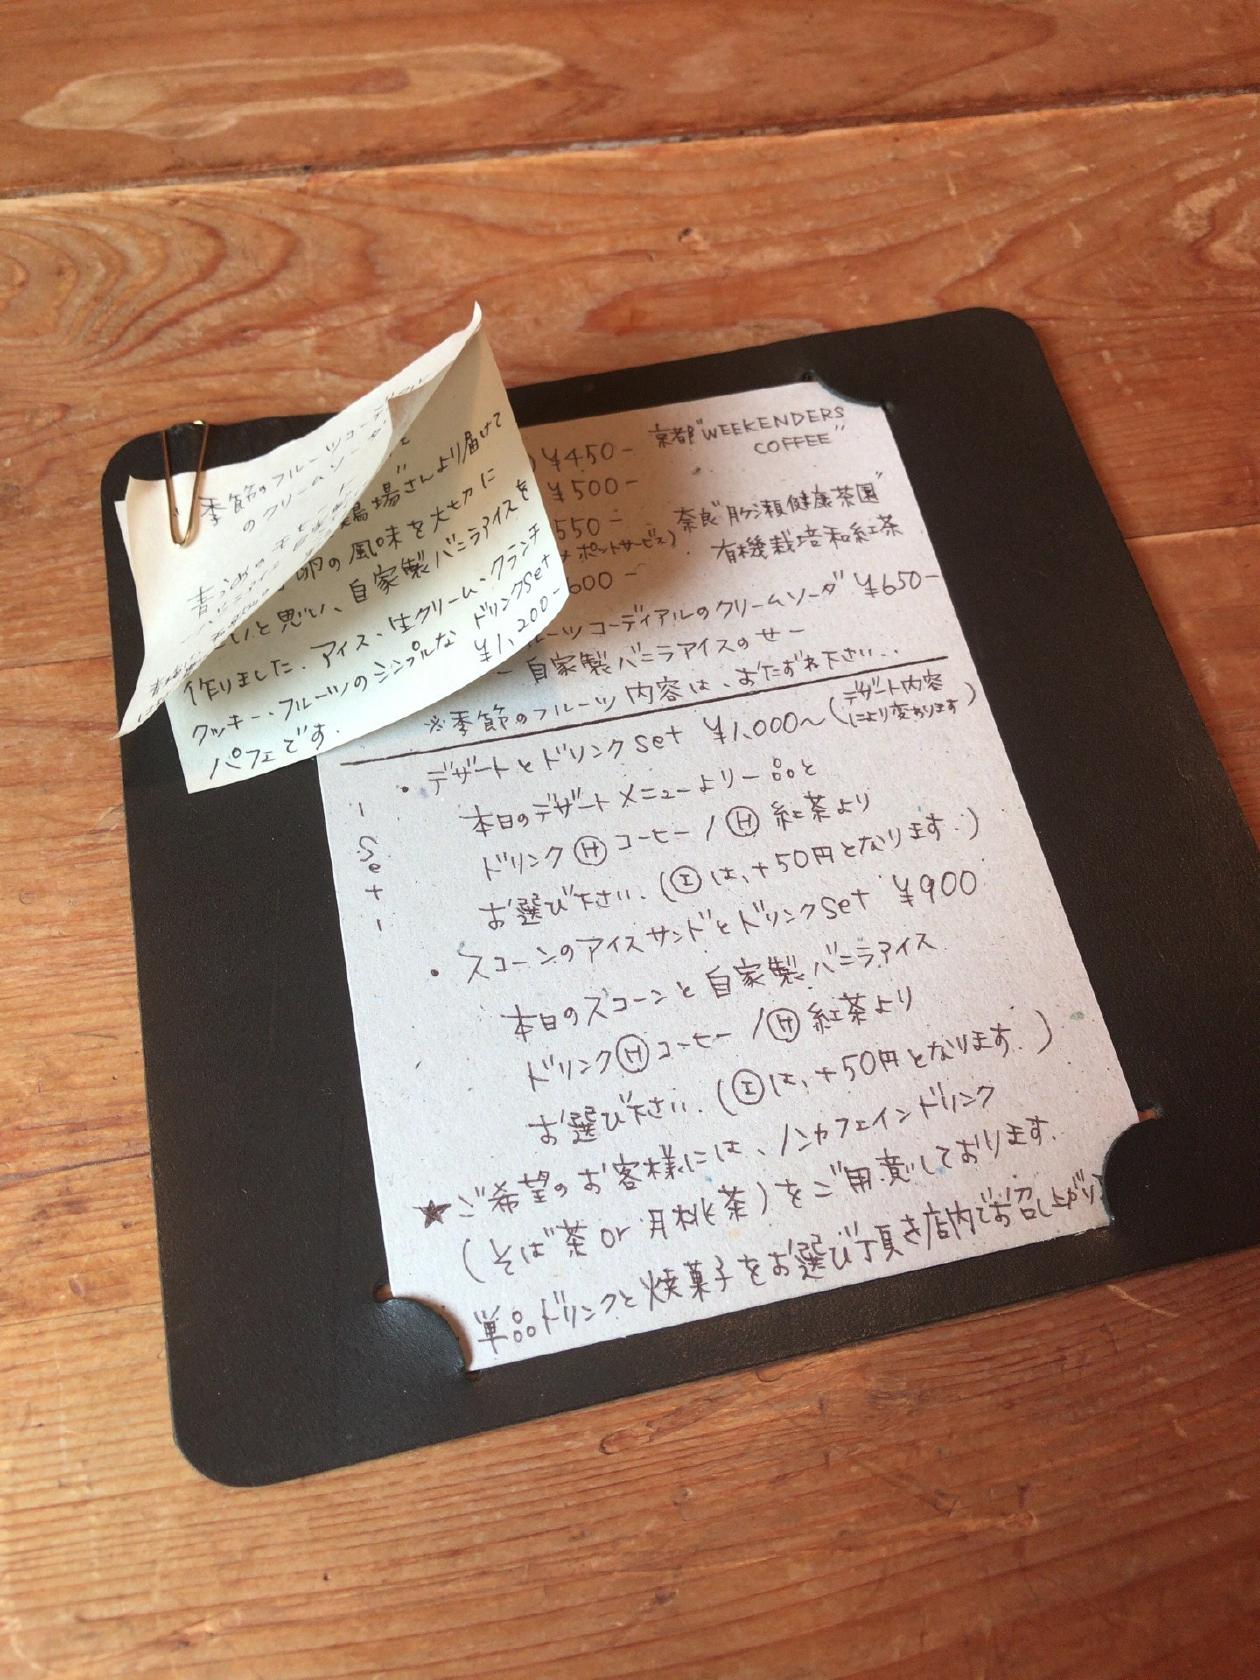 季節のフルーツコー
のクリームソーダ
場"さんより届けて
卵の風味を大切に
いと思い、自家製バニラアイスを
作りました。アイス・生クリーム・クランチ
クッキー・フルーツのシンプルな ドリンクset
パフェです。 ¥1,200-
)¥450- 京都"WEEKENDERS
COFFEE"
¥500-
550- 奈良"月ヶ瀬健康茶園"
ポットサービス) 有機栽培和紅茶
600-
ルーツコーディアルのクリームソーダ ¥650-
- 自家製バニラアイスのせ -
※季節のフルーツ内容は、おたずね下さい...
- Set -
・デザートとドリンクset ¥1,000〜(デザート内容
により変わります)
本日のデザートメニューより一品と
ドリンク Ⓗ コーヒー / Ⓗ 紅茶より
お選び下さい。(Ⓘは、+50円となります。)
・スコーンのアイスサンドとドリンクset ¥900
本日のスコーンと自家製バニラアイス
ドリンク Ⓗ コーヒー / Ⓗ 紅茶より
お選び下さい。(Ⓘは、+50円となります。)
★ご希望のお客様には、ノンカフェインドリンク
(そば茶 or 月桃茶)をご用意しております。
単品ドリンクと焼菓子をお選び頂き店内でお召し上がり